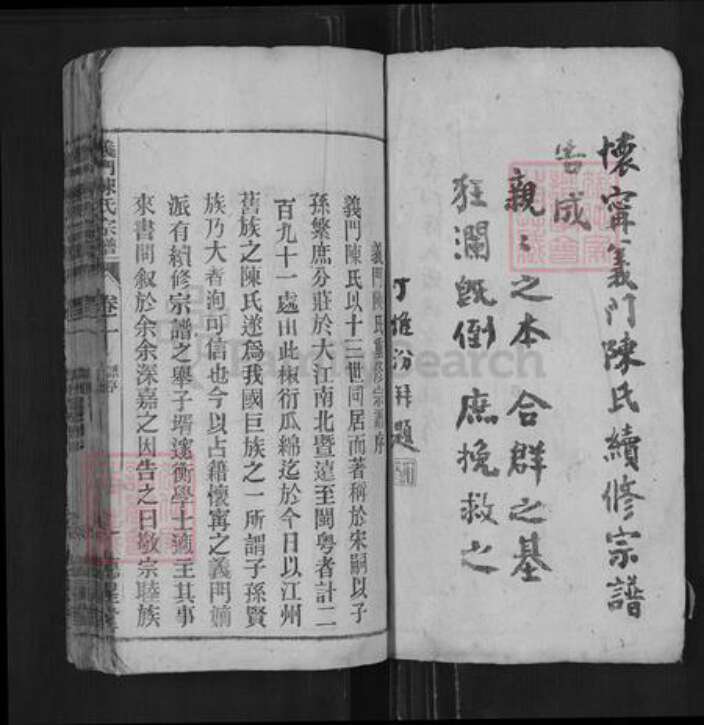 懷寧義門陳氏續修宗譜
告成
親〻之本 合群之基
狂瀾旣倒 庶挽救之
丁惟汾拜題
義門陳氏重修宗譜序
義門陳氏以十三世同居而著稱於宋嗣以子
孫繁庶分莊於大江南北暨遠至閩粤者計二
百九十一處由此椒衍瓜綿迄於今日以江州
舊族之陳氏遂爲我國巨族之一所謂子孫賢
族乃大者洵可信也今以占籍懷甯之義門嫡
派有續修宗譜之舉子壻蘧衡學士適主其事
來書問叙於余余深嘉之因告之曰敬宗睦族
義門陳氏宗譜
卷一
FamilySearch